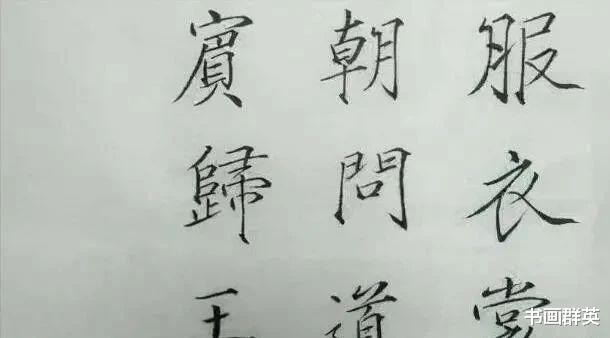 服衣裳
朝問道
賓歸王
书画群英